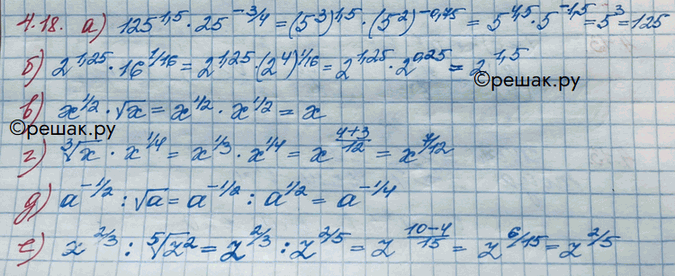 4.18. а) 125^1,5 · 25^-3/4 = (5^3)^1,5 · (5^2)^-0,75 = 5^4,5 · 5^-1,5 = 5^3 = 125
б) 2^1,25 · 16^1/16 = 2^1,25 · (2^4)^1/16 = 2^1,25 · 2^0,25 = 2^1,5
©решак.ру
в) x^1/2 · √x = x^1/2 · x^1/2 = x
©решак.ру
г) ∛x · x^1/4 = x^1/3 · x^1/4 = x^(4+3)/12 = x^7/12
д) a^-1/2 : √a = a^-1/2 : a^1/2 = a^-1/4
е) z^2/3 : ⁵√z^2 = z^2/3 : z^2/5 = z^(10-4)/15 = z^6/15 = z^2/5